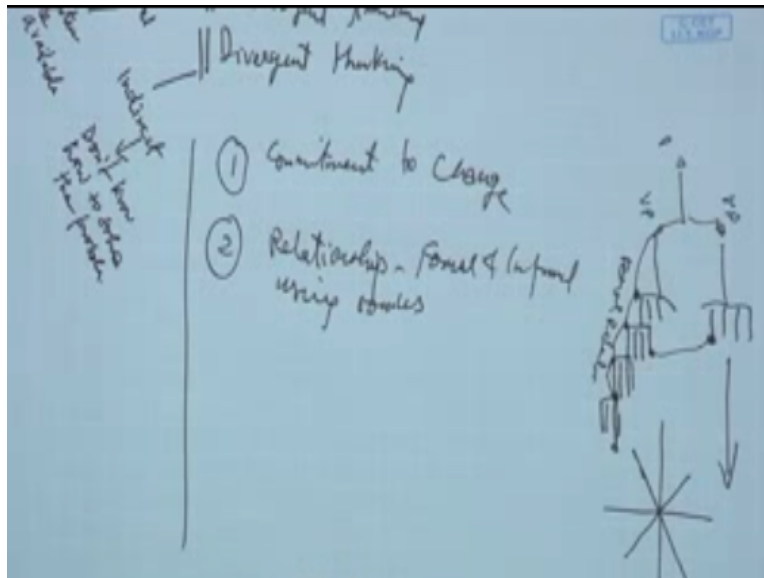 available
Divergent thinking
Indirect
Don't know
how to solve
the problem
① Commitment to Change
② Relationship - Formal & Informal
using nodes
P
VP
VP
Formal